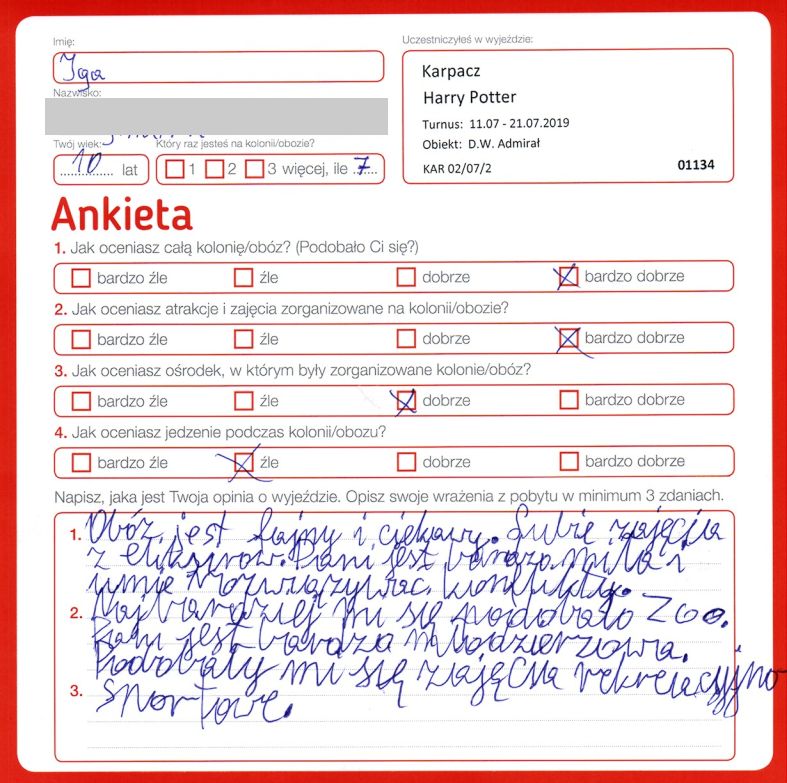 Imię:
Uczestniczyłeś w wyjeździe:
Iga
Karpacz
Harry Potter
Turnus: 11.07 - 21.07.2019
Obiekt: D.W. Admirał
KAR 02/07/2
01134
Nazwisko:
Twój wiek:
Który raz jesteś na kolonii/obozie?
10 lat
1 2 3 więcej, ile 7
Ankieta
1. Jak oceniasz całą kolonię/obóz? (Podobało Ci się?)
bardzo źle źle dobrze bardzo dobrze
2. Jak oceniasz atrakcje i zajęcia zorganizowane na kolonii/obozie?
bardzo źle źle dobrze bardzo dobrze
3. Jak oceniasz ośrodek, w którym były zorganizowane kolonie/obóz?
bardzo źle źle dobrze bardzo dobrze
4. Jak oceniasz jedzenie podczas kolonii/obozu?
bardzo źle źle dobrze bardzo dobrze
Napisz, jaka jest Twoja opinia o wyjeździe. Opisz swoje wrażenia z pobytu w minimum 3 zdaniach.
1. Obóz jest fajny i ciekawy. Lubie zajęcia
z eliksirów. Pani jest bardzo miła i
umie rozwiązywać konflikty.
2. Najbardziej mi się podobało Zoo.
Pani jest bardzo młodzierzowa.
Podobały mi się zajęcia rekreacyjno
3. sportowe.